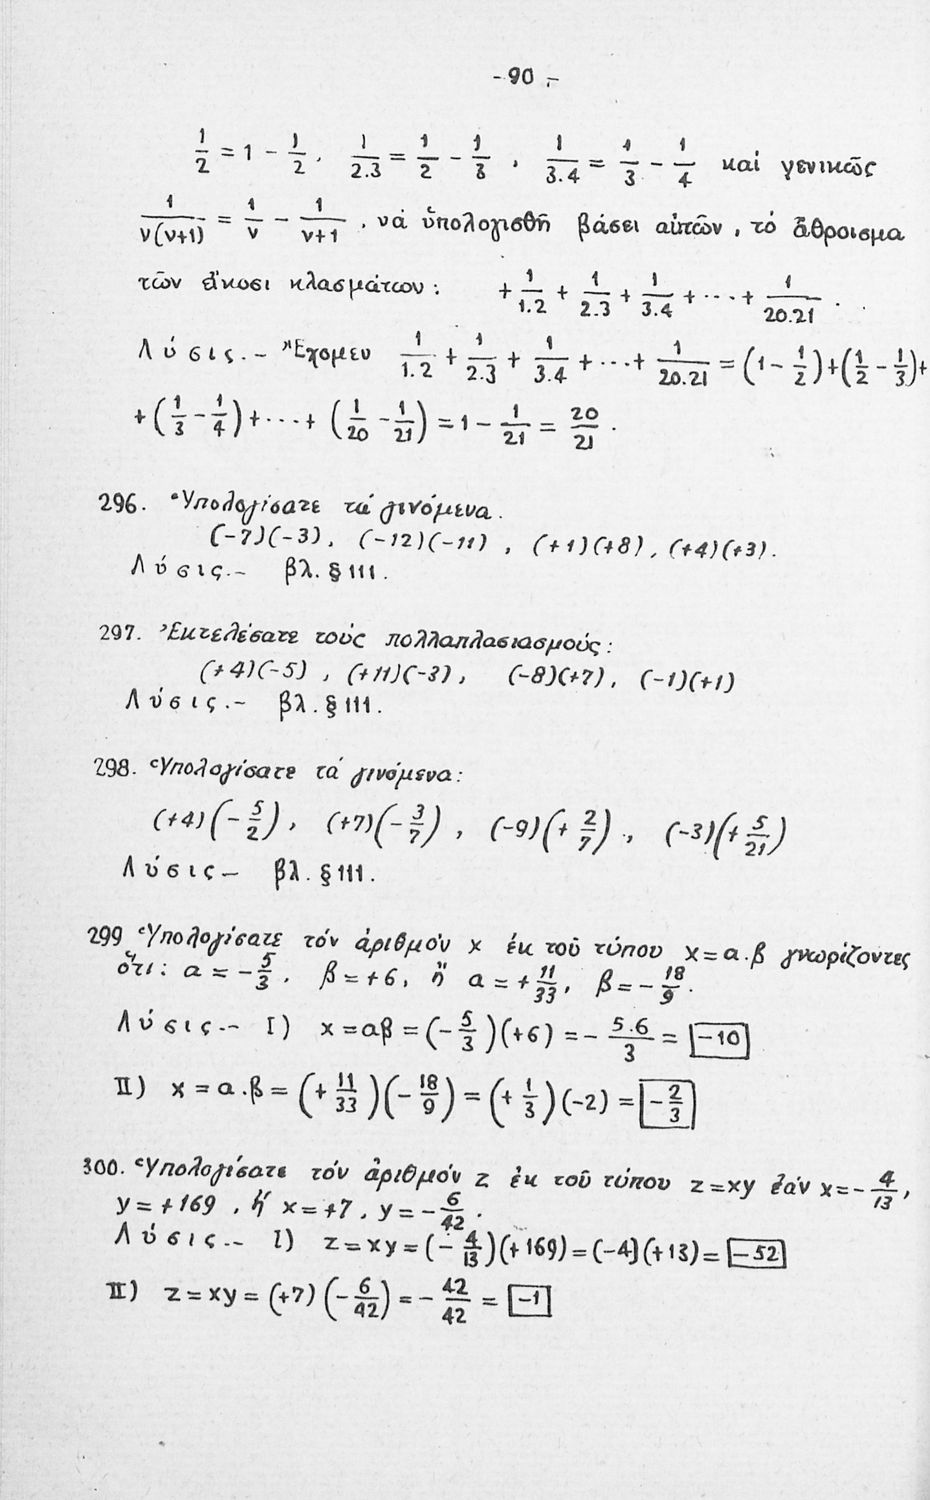 -90-
1/2 = 1 - 1/2, 1/2.3 = 1/2 - 1/3, 1/3.4 = 1/3 - 1/4 καί γενικῶς
1/ν(ν+1) = 1/ν - 1/ν+1, νά ὑπολογισθῆ βάσει αὐτῶν, τό ἄθροισμα
τῶν εἴκοσι κλασμάτων: + 1/1.2 + 1/2.3 + 1/3.4 + ... + 1/20.21.
Λύσις.- Ἔχομεν 1/1.2 + 1/2.3 + 1/3.4 + ... + 1/20.21 = (1 - 1/2) + (1/2 - 1/3) +
+ (1/3 - 1/4) + ... + (1/20 - 1/21) = 1 - 1/21 = 20/21.
296. Ὑπολογίσατε τά γινόμενα.
(-7)(-3), (-12)(-11), (+1)(+8), (+4)(+3).
Λύσις.- βλ. § 111.
297. Ἐκτελέσατε τούς πολλαπλασιασμούς:
(+4)(-5), (+11)(-3), (-8)(+7), (-1)(+1)
Λύσις.- βλ. § 111.
298. Ὑπολογίσατε τά γινόμενα:
(+4)(-5/2), (+7)(-3/7), (-9)(+2/7), (-3)(+5/21)
Λύσις- βλ. § 111.
299 Ὑπολογίσατε τόν ἀριθμόν x ἐκ τοῦ τύπου x=α.β γνωρίζοντες
ὅτι: α = -5/3, β = +6, ἤ α = +11/33, β = -18/9.
Λύσις.- I) x = αβ = (-5/3)(+6) = - 5.6/3 = -10
II) x = α.β = (+11/33)(-18/9) = (+1/3)(-2) = -2/3
300. Ὑπολογίσατε τόν ἀριθμόν z ἐκ τοῦ τύπου z=xy ἐάν x=-4/13,
y = +169, ἤ x = +7, y = -6/42.
Λύσις.- I) z = xy = (-4/13)(+169) = (-4)(+13) = -52
II) z = xy = (+7)(-6/42) = -42/42 = -1